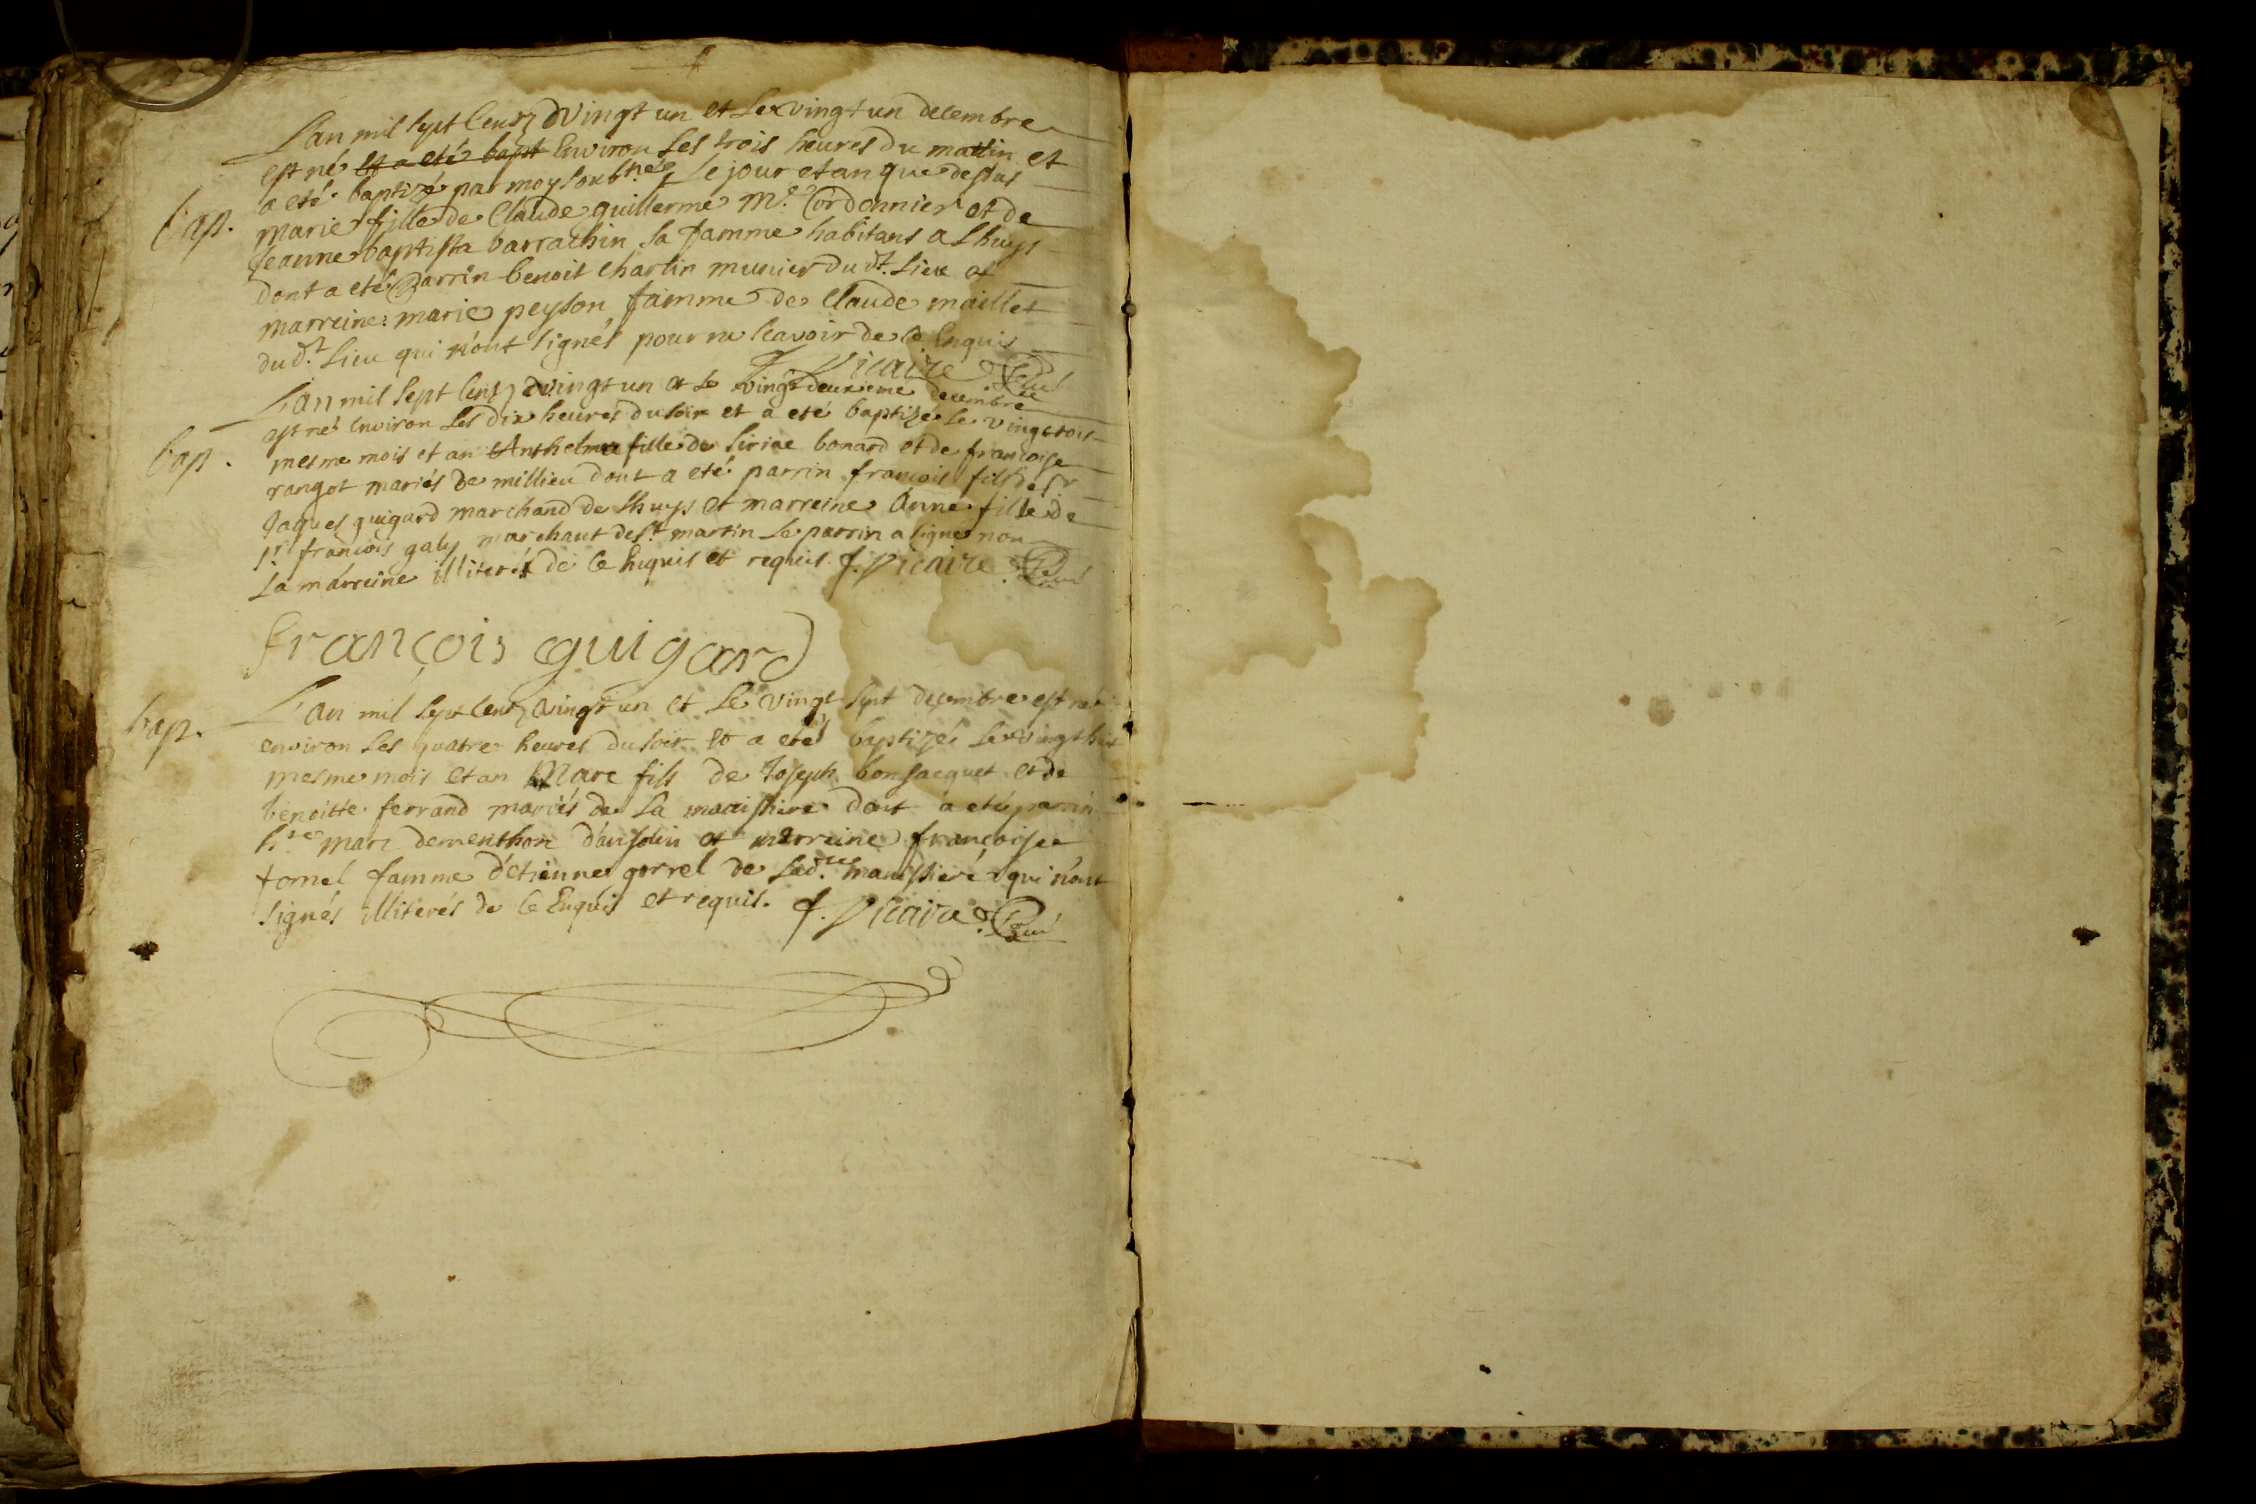 L'an mil sept cents vingt un et le vingt un decembre
est né et a eté bapt Environ les trois heures du mattin et
a eté baptizé par moy soubné le jour et an que dessus
bap.
marie fille de Claude guillerme Me. Cordonnier et de
jeanne baptista barrachin sa famme habitans a Lhuys
dont a eté Parrin benoit Charlin munier dudt. lieu et
marreine marie peyson famme de Claude maillet
dudt. lieu qui n'ont signés pour ne scavoir de ce Enquis
f. Vicaire Curé
L'an mil sept cents vingt un et le vingt deuxieme decembre
est né Environ les dix heures du soir et a eté baptizée le vingttois
bap.
mesme mois et an Anthelma fille de bonard et de francoise
rangot mariés de millieu dont a eté parrin francois fils de sr
Jaques guigard marchand de Lhuys et marreine Anne fille de
sr francois galy marchant de st. martin le parrin a signé non
la marreine illiterés de ce Enquis et requis. f. Vicaire Curé
françois guigard
bap.
L'an mil sept cents vingt un et le vingt sept decembre est né
environ les quatre heures du soir et a eté baptizé le vingt huit
mesme mois et an Marc fils de Joseph bonjacquet et de
benoitte ferrand mariés de la dont a eté parrin
marc dementhon et marreine francoise
tornel famme d'etienne gorrel de ladte. qui n'ont
signés illiterés de ce Enquis et requis. f. Vicaire Curé